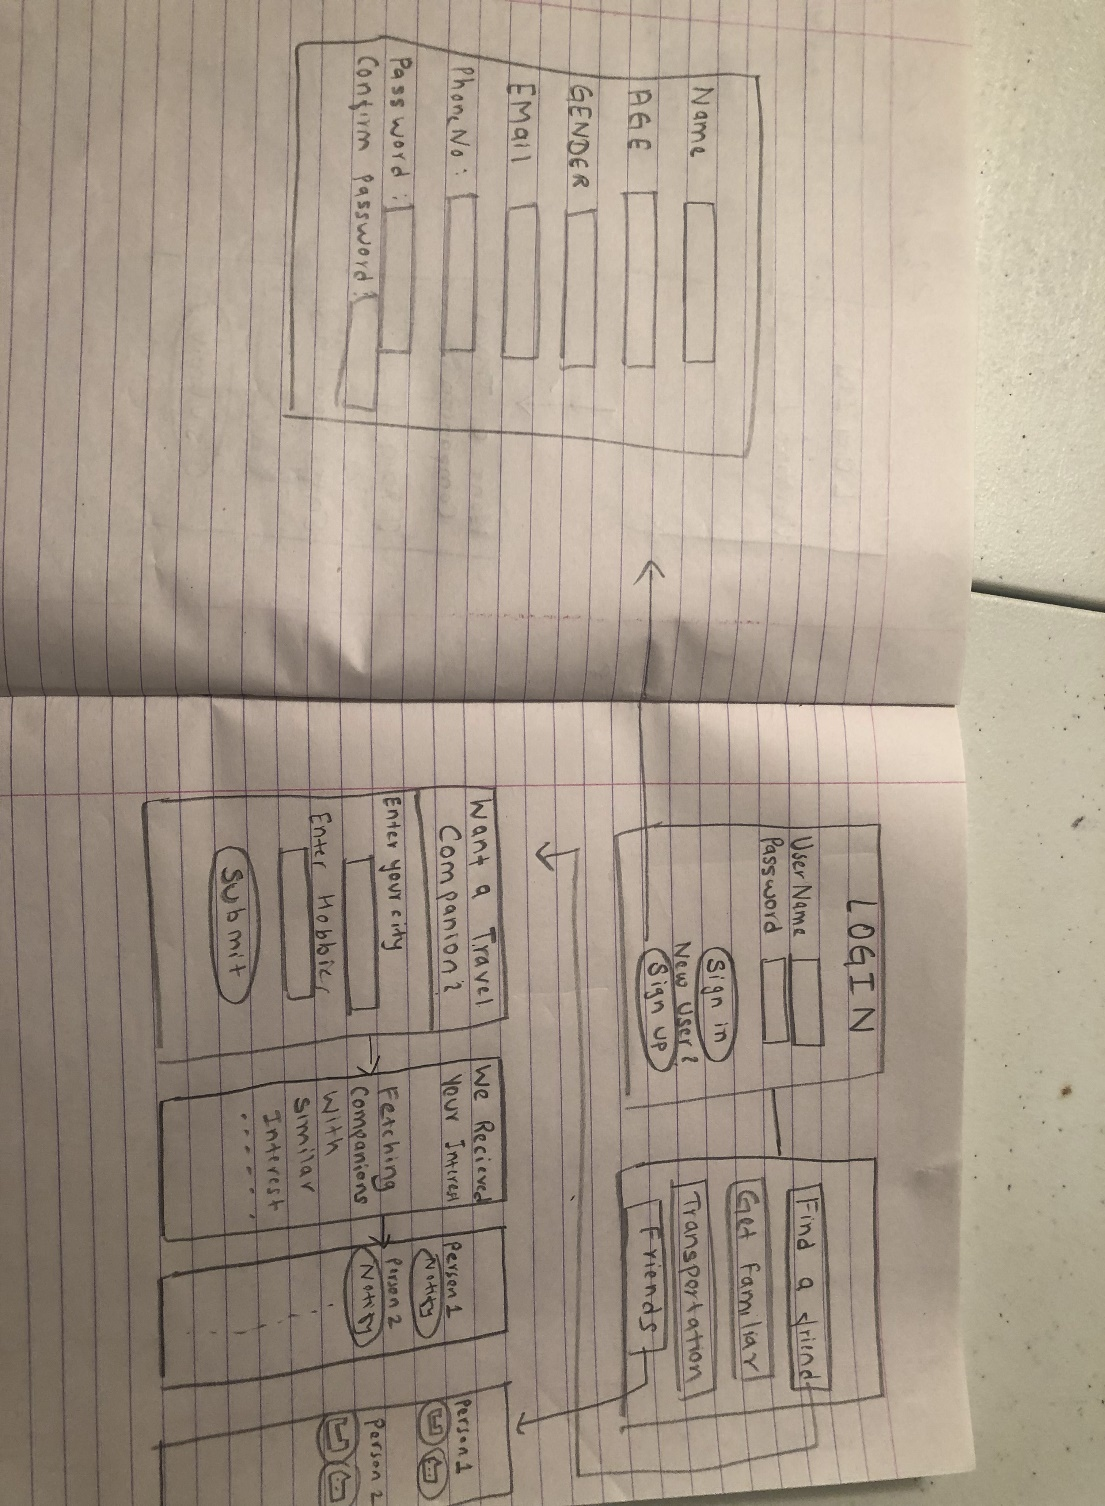 Name
AGE
GENDER
EMail
Phone No :
Password :
Confirm Password :
LOGIN
UserName
Password
Sign in
New User?
Sign up
Find a friend
Get familiar
Transportation
Friends
Want a Travel
Companion?
Enter your city
Enter Hobbies
Submit
We Recieved
your Interest
Fetching
Companions
With
Similar
Interest
......
Person 1
Notify
Person 2
Notify
Person 1
Person 2